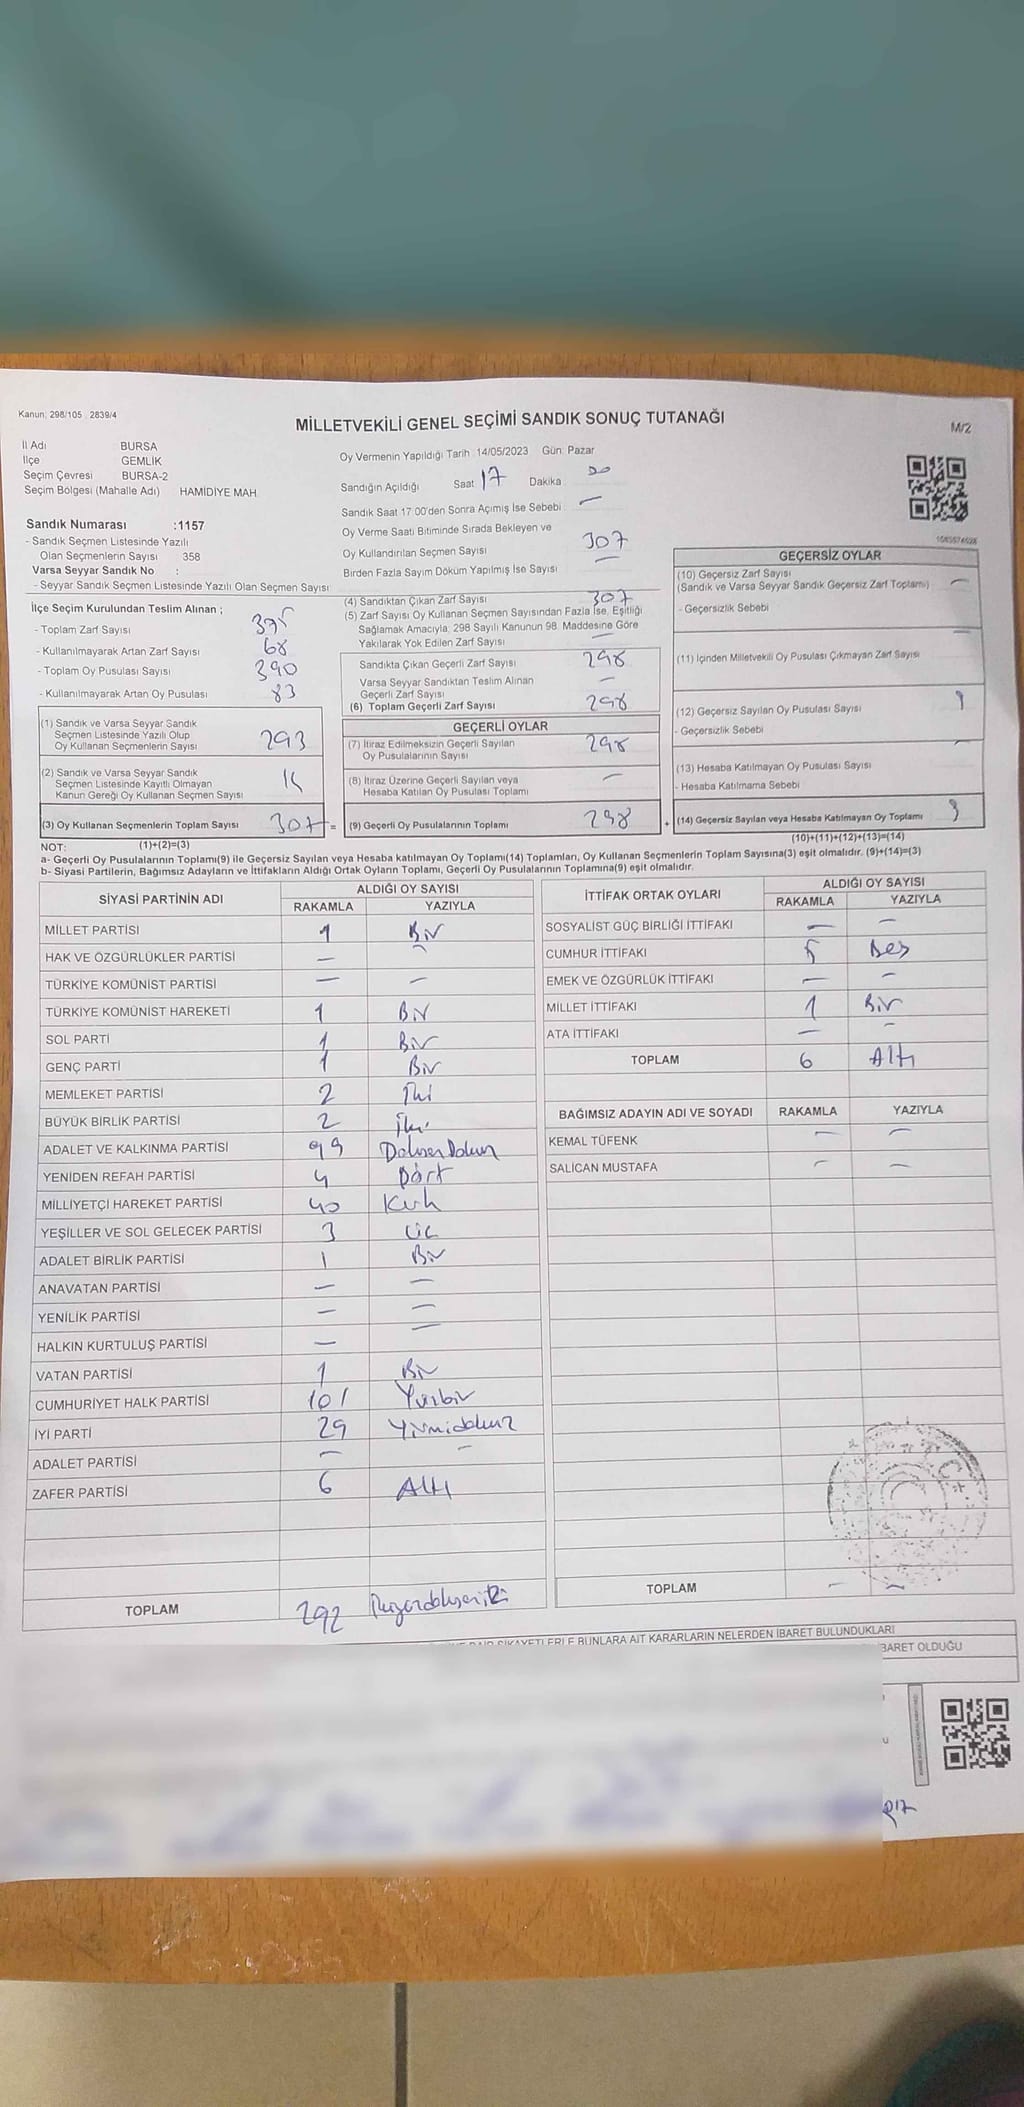 Kanun; 298/105 . 2839/4
MİLLETVEKİLİ GENEL SEÇİMİ SANDIK SONUÇ TUTANAĞI
M/2
İl Adı BURSA
İlçe GEMLİK
Seçim Çevresi BURSA-2
Seçim Bölgesi (Mahalle Adı) HAMİDİYE MAH.
Oy Vermenin Yapıldığı Tarih : 14/05/2023 Gün: Pazar
Sandığın Açıldığı Saat 17 Dakika
Sandık Saat 17:00'den Sonra Açımış İse Sebebi —
Oy Verme Saati Bitiminde Sırada Bekleyen ve
Oy Kullandırılan Seçmen Sayısı 307
Birden Fazla Sayım Döküm Yapılmış İse Sayısı —
Sandık Numarası :1157
- Sandık Seçmen Listesinde Yazılı
Olan Seçmenlerin Sayısı : 358
Varsa Seyyar Sandık No :
- Seyyar Sandık Seçmen Listesinde Yazılı Olan Seçmen Sayısı:
İlçe Seçim Kurulundan Teslim Alınan ;
- Toplam Zarf Sayısı 375
- Kullanılmayarak Artan Zarf Sayısı 68
- Toplam Oy Pusulası Sayısı 390
- Kullanılmayarak Artan Oy Pusulası 83
(1) Sandık ve Varsa Seyyar Sandık
Seçmen Listesinde Yazılı Olup
Oy Kullanan Seçmenlerin Sayısı 293
(2) Sandık ve Varsa Seyyar Sandık
Seçmen Listesinde Kayıtlı Olmayan
Kanun Gereği Oy Kullanan Seçmen Sayısı 14
(3) Oy Kullanan Seçmenlerin Toplam Sayısı 307 =
(4) Sandıktan Çıkan Zarf Sayısı 307
(5) Zarf Sayısı Oy Kullanan Seçmen Sayısından Fazla İse, Eşitliği
Sağlamak Amacıyla, 298 Sayılı Kanunun 98. Maddesine Göre
Yakılarak Yok Edilen Zarf Sayısı —
Sandıkta Çıkan Geçerli Zarf Sayısı 298
Varsa Seyyar Sandıktan Teslim Alınan
Geçerli Zarf Sayısı —
(6) Toplam Geçerli Zarf Sayısı 298
GEÇERLİ OYLAR
(7) İtiraz Edilmeksizin Geçerli Sayılan
Oy Pusulalarının Sayısı 298
(8) İtiraz Üzerine Geçerli Sayılan veya
Hesaba Katılan Oy Pusulası Toplamı —
(9) Geçerli Oy Pusulalarının Toplamı 298 +
GEÇERSİZ OYLAR
(10) Geçersiz Zarf Sayısı
(Sandık ve Varsa Seyyar Sandık Geçersiz Zarf Toplamı) —
- Geçersizlik Sebebi
(11) İçinden Milletvekili Oy Pusulası Çıkmayan Zarf Sayısı —
(12) Geçersiz Sayılan Oy Pusulası Sayısı 9
- Geçersizlik Sebebi
(13) Hesaba Katılmayan Oy Pusulası Sayısı —
- Hesaba Katılmama Sebebi
(14) Geçersiz Sayılan veya Hesaba Katılmayan Oy Toplamı 9
NOT: (1)+(2)=(3) (10)+(11)+(12)+(13)=(14)
a- Geçerli Oy Pusulalarının Toplamı(9) ile Geçersiz Sayılan veya Hesaba katılmayan Oy Toplamı(14) Toplamları, Oy Kullanan Seçmenlerin Toplam Sayısına(3) eşit olmalıdır. (9)+(14)=(3)
b- Siyasi Partilerin, Bağımsız Adayların ve İttifakların Aldığı Ortak Oyların Toplamı, Geçerli Oy Pusulalarının Toplamına(9) eşit olmalıdır.
SİYASİ PARTİNİN ADI ALDIĞI OY SAYISI
RAKAMLA YAZIYLA
MİLLET PARTİSİ 1 Bir
HAK VE ÖZGÜRLÜKLER PARTİSİ — —
TÜRKİYE KOMÜNİST PARTİSİ — —
TÜRKİYE KOMÜNİST HAREKETİ 1 Bir
SOL PARTİ 1 Bir
GENÇ PARTİ 1 Bir
MEMLEKET PARTİSİ 2 İki
BÜYÜK BİRLİK PARTİSİ 2 İki
ADALET VE KALKINMA PARTİSİ 99 Doksandokuz
YENİDEN REFAH PARTİSİ 4 Dört
MİLLİYETÇİ HAREKET PARTİSİ 40 Kırk
YEŞİLLER VE SOL GELECEK PARTİSİ 3 Üç
ADALET BİRLİK PARTİSİ 1 Bir
ANAVATAN PARTİSİ — —
YENİLİK PARTİSİ — —
HALKIN KURTULUŞ PARTİSİ — —
VATAN PARTİSİ 1 Bir
CUMHURİYET HALK PARTİSİ 101 Yüzbir
İYİ PARTİ 29 Yirmidokuz
ADALET PARTİSİ — —
ZAFER PARTİSİ 6 Altı
TOPLAM 292 İkiyüzdoksaniki
İTTİFAK ORTAK OYLARI ALDIĞI OY SAYISI
RAKAMLA YAZIYLA
SOSYALİST GÜÇ BİRLİĞİ İTTİFAKI — —
CUMHUR İTTİFAKI 5 Beş
EMEK VE ÖZGÜRLÜK İTTİFAKI — —
MİLLET İTTİFAKI 1 Bir
ATA İTTİFAKI — —
TOPLAM 6 Altı
BAĞIMSIZ ADAYIN ADI VE SOYADI RAKAMLA YAZIYLA
KEMAL TÜFENK — —
SALİCAN MUSTAFA — —
TOPLAM — —
BUNLARA AİT KARARLARIN NELERDEN İBARET BULUNDUKLARI
BARET OLDUĞU